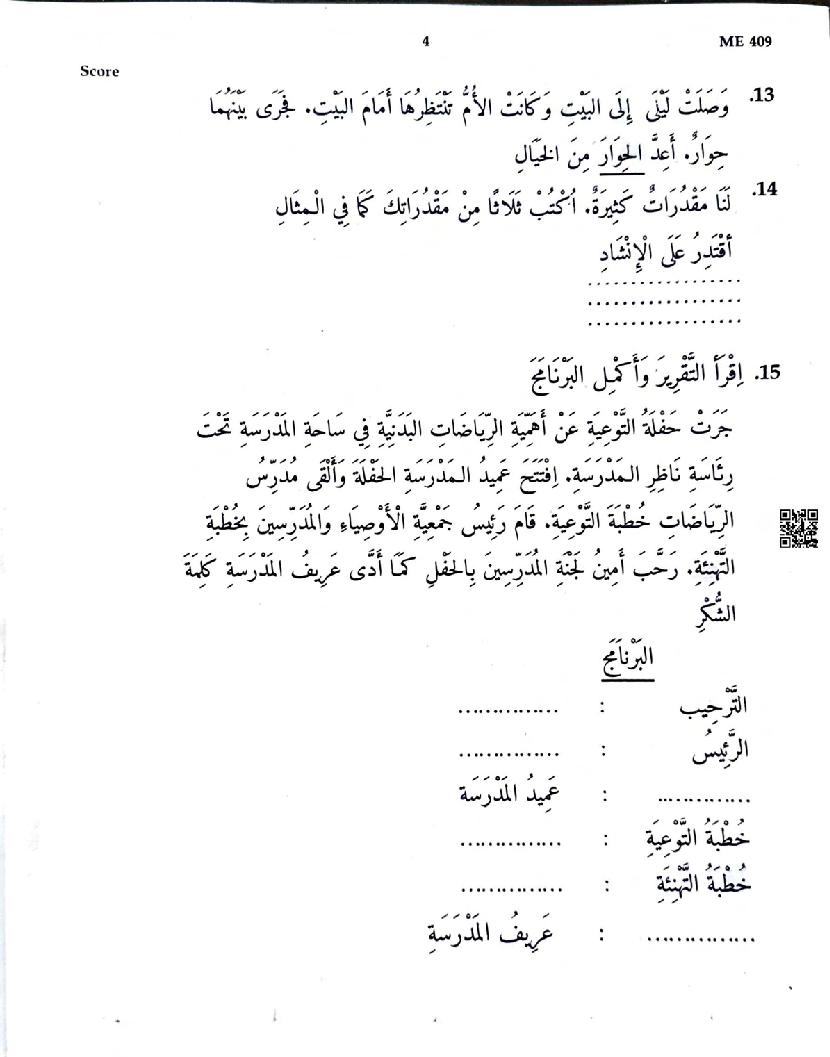 4
ME 409
Score
13. وَصَلَتْ لَيْلَى إِلَى البَيْتِ وَكَانَتْ الأُمُّ تَنْتَظِرُهَا أَمَامَ البَيْتِ. فَجَرَى بَيْنَهُمَا
حِوَارٌ. أَعِدَّ الحِوَارَ مِنَ الخَيَالِ
14. لَنَا مَقْدُرَاتٌ كَثِيرَةٌ. اُكْتُبْ ثَلَاثًا مِنْ مَقْدُرَاتِكَ كَمَا فِي الْمِثَالِ
أَقْتَدِرُ عَلَى الْإِنْشَادِ
....................
....................
....................
15. اِقْرَأْ التَّقْرِيرَ وَأَكْمِلِ البَرْنَامَجَ
جَرَتْ حَفْلَةُ التَّوْعِيَةِ عَنْ أَهَمِّيَّةِ الرِّيَاضَاتِ البَدَنِيَّةِ فِي سَاحَةِ المَدْرَسَةِ تَحْتَ
رِئَاسَةِ نَاظِرِ المَدْرَسَةِ. اِفْتَتَحَ عَمِيدُ المَدْرَسَةِ الحَفْلَةَ وَأَلْقَى مُدَرِّسُ
الرِّيَاضَاتِ خُطْبَةَ التَّوْعِيَةِ. قَامَ رَئِيسُ جَمْعِيَّةِ الْأَوْصِيَاءِ وَالمُدَرِّسِينَ بِخُطْبَةِ
التَّهْنِئَةِ. رَحَّبَ أَمِينُ لَجْنَةِ المُدَرِّسِينَ بِالحَفْلِ كَمَا أَدَّى عَرِيفُ المَدْرَسَةِ كَلِمَةَ
الشُّكْرِ
البَرْنَامَج
التَّرْحِيب : ...............
الرَّئِيسُ : ...............
.............. : عَمِيدُ المَدْرَسَة
خُطْبَةُ التَّوْعِيَةِ : ...............
خُطْبَةُ التَّهْنِئَةِ : ...............
................ : عَرِيفُ المَدْرَسَةِ